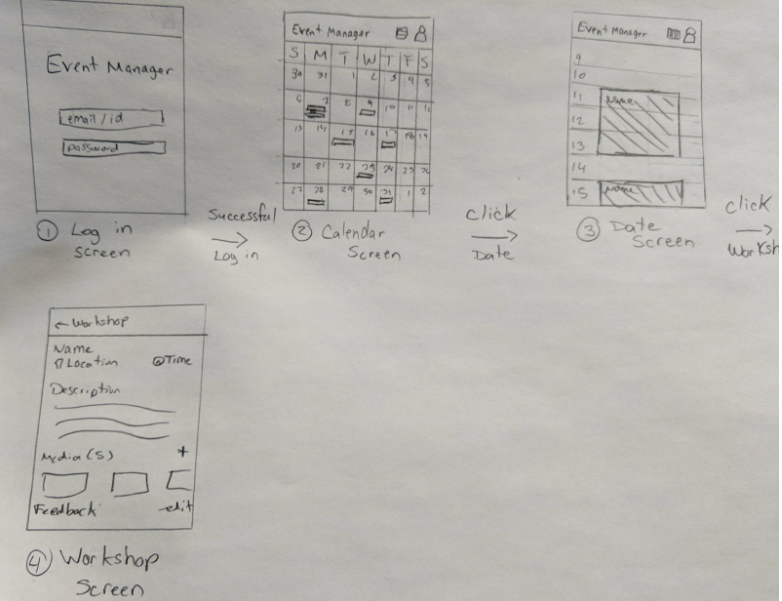 Event Manager
email/id
password
① Log in
Screen
Successful
Log in
Event Manager
S M T W T F S
30 31 1 2 3 4 5
6 7 8 9 10 11
13 14 15 16 17 18 19
20 21 22 23 24 25 26
27 28 29 30 31 1 2
② Calendar
Screen
click
Date
Event Manager
9
10
11 Name
12
13
14
15 Name
③ Date
Screen
click
Worksh
← Workshop
Name
Location Time
Description
Media (5) +
Feedback edit
④ Workshop
Screen